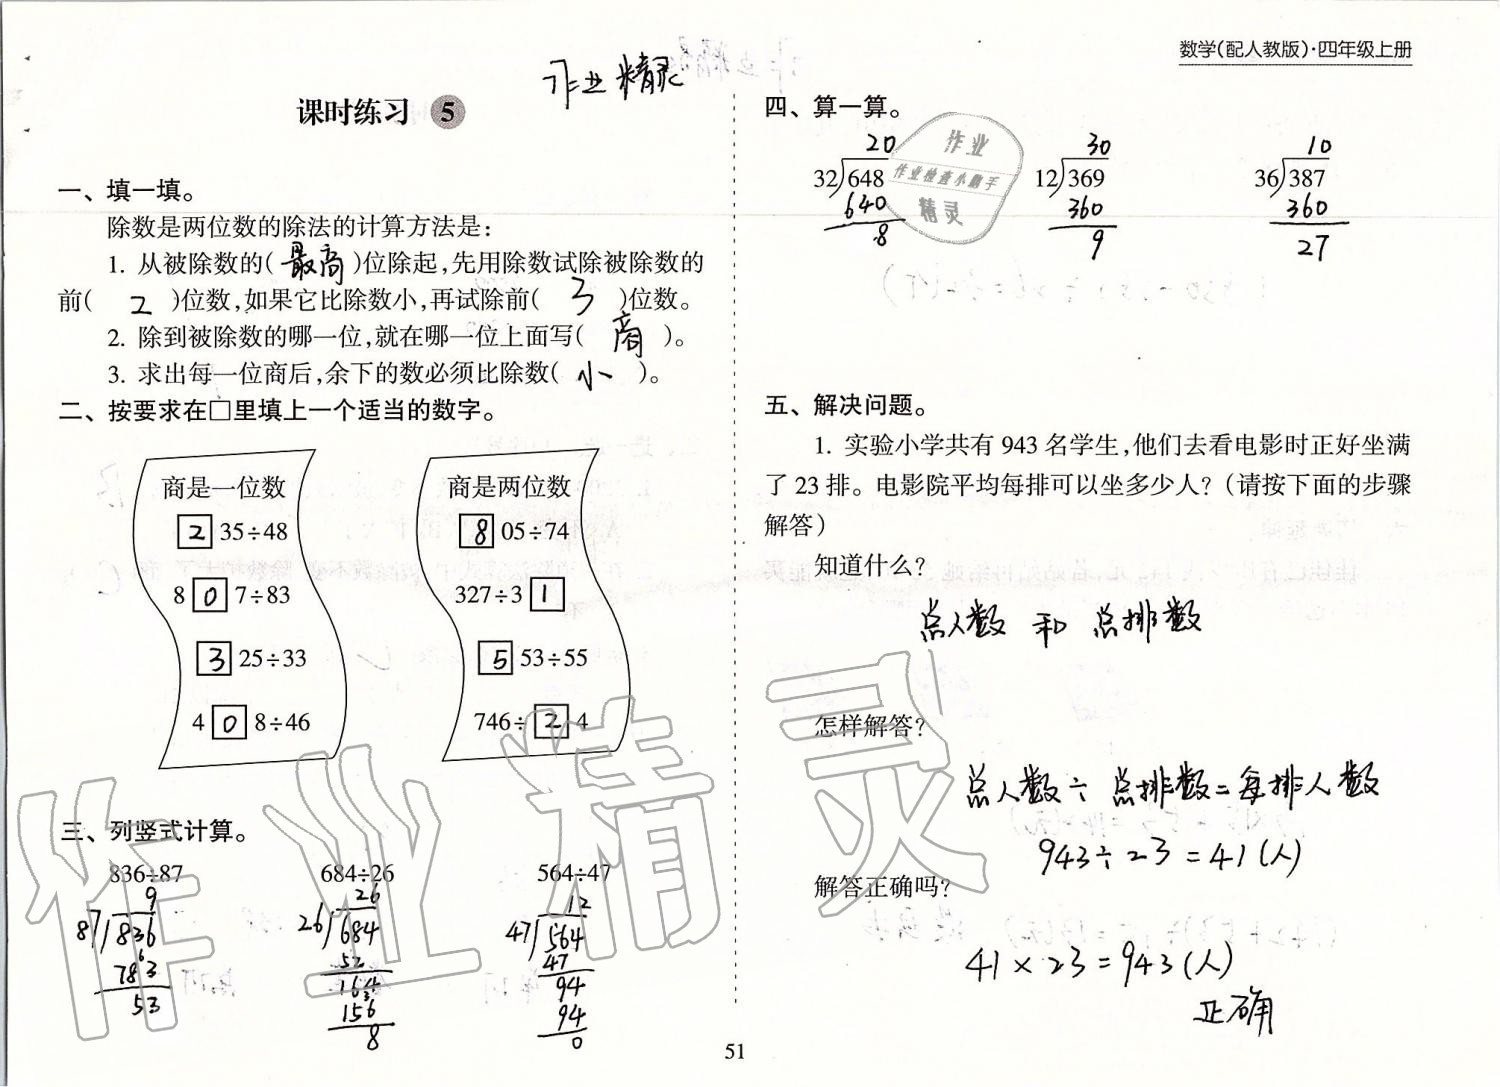 作业精灵
课时练习 5
一、填一填。
除数是两位数的除法的计算方法是:
1. 从被除数的( 最高 )位除起,先用除数试除被除数的
前( 2 )位数,如果它比除数小,再试除前( 3 )位数。
2. 除到被除数的哪一位,就在哪一位上面写( 商 )。
3. 求出每一位商后,余下的数必须比除数( 小 )。
二、按要求在□里填上一个适当的数字。
商是一位数
2 35÷48
8 0 7÷83
3 25÷33
4 0 8÷46
商是两位数
8 05÷74
327÷3 1
5 53÷55
746÷ 2 4
三、列竖式计算。
836÷87
9
87 836
783
6
53
684÷26
26
26 684
52
164
156
3
8
564÷47
12
47 564
47
94
94
0
数学(配人教版)·四年级上册
四、算一算。
20
32 648
640
8
30
12 369
360
9
10
36 387
360
27
作业
作业检查小助手
精灵
五、解决问题。
1. 实验小学共有 943 名学生,他们去看电影时正好坐满
了 23 排。电影院平均每排可以坐多少人?(请按下面的步骤
解答)
知道什么?
总人数 和 总排数
怎样解答?
总人数÷总排数=每排人数
943÷23=41(人)
解答正确吗?
41×23=943(人)
正确
作业精灵
51